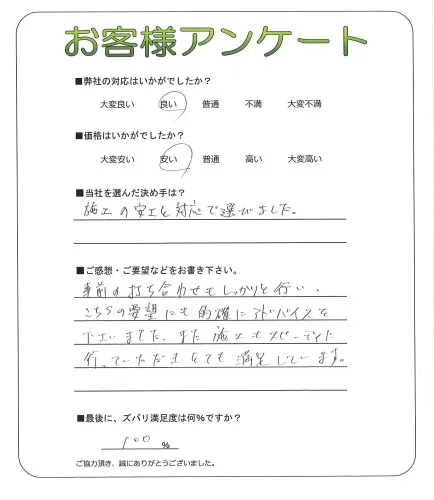 お客様アンケート
■弊社の対応はいかがでしたか？
大変良い 良い 普通 不満 大変不満
■価格はいかがでしたか？
大変安い 安い 普通 高い 大変高い
■当社を選んだ決め手は？
施工の安さと対応で選びました。
■ご感想・ご要望などをお書き下さい。
事前の打ち合わせもしっかりと行い、
こちらの要望にも的確にアドバイスを
下さいました。また施工もスピーディに
行っていただきとても満足しています。
■最後に、ズバリ満足度は何％ですか？
100 ％
ご協力頂き、誠にありがとうございました。